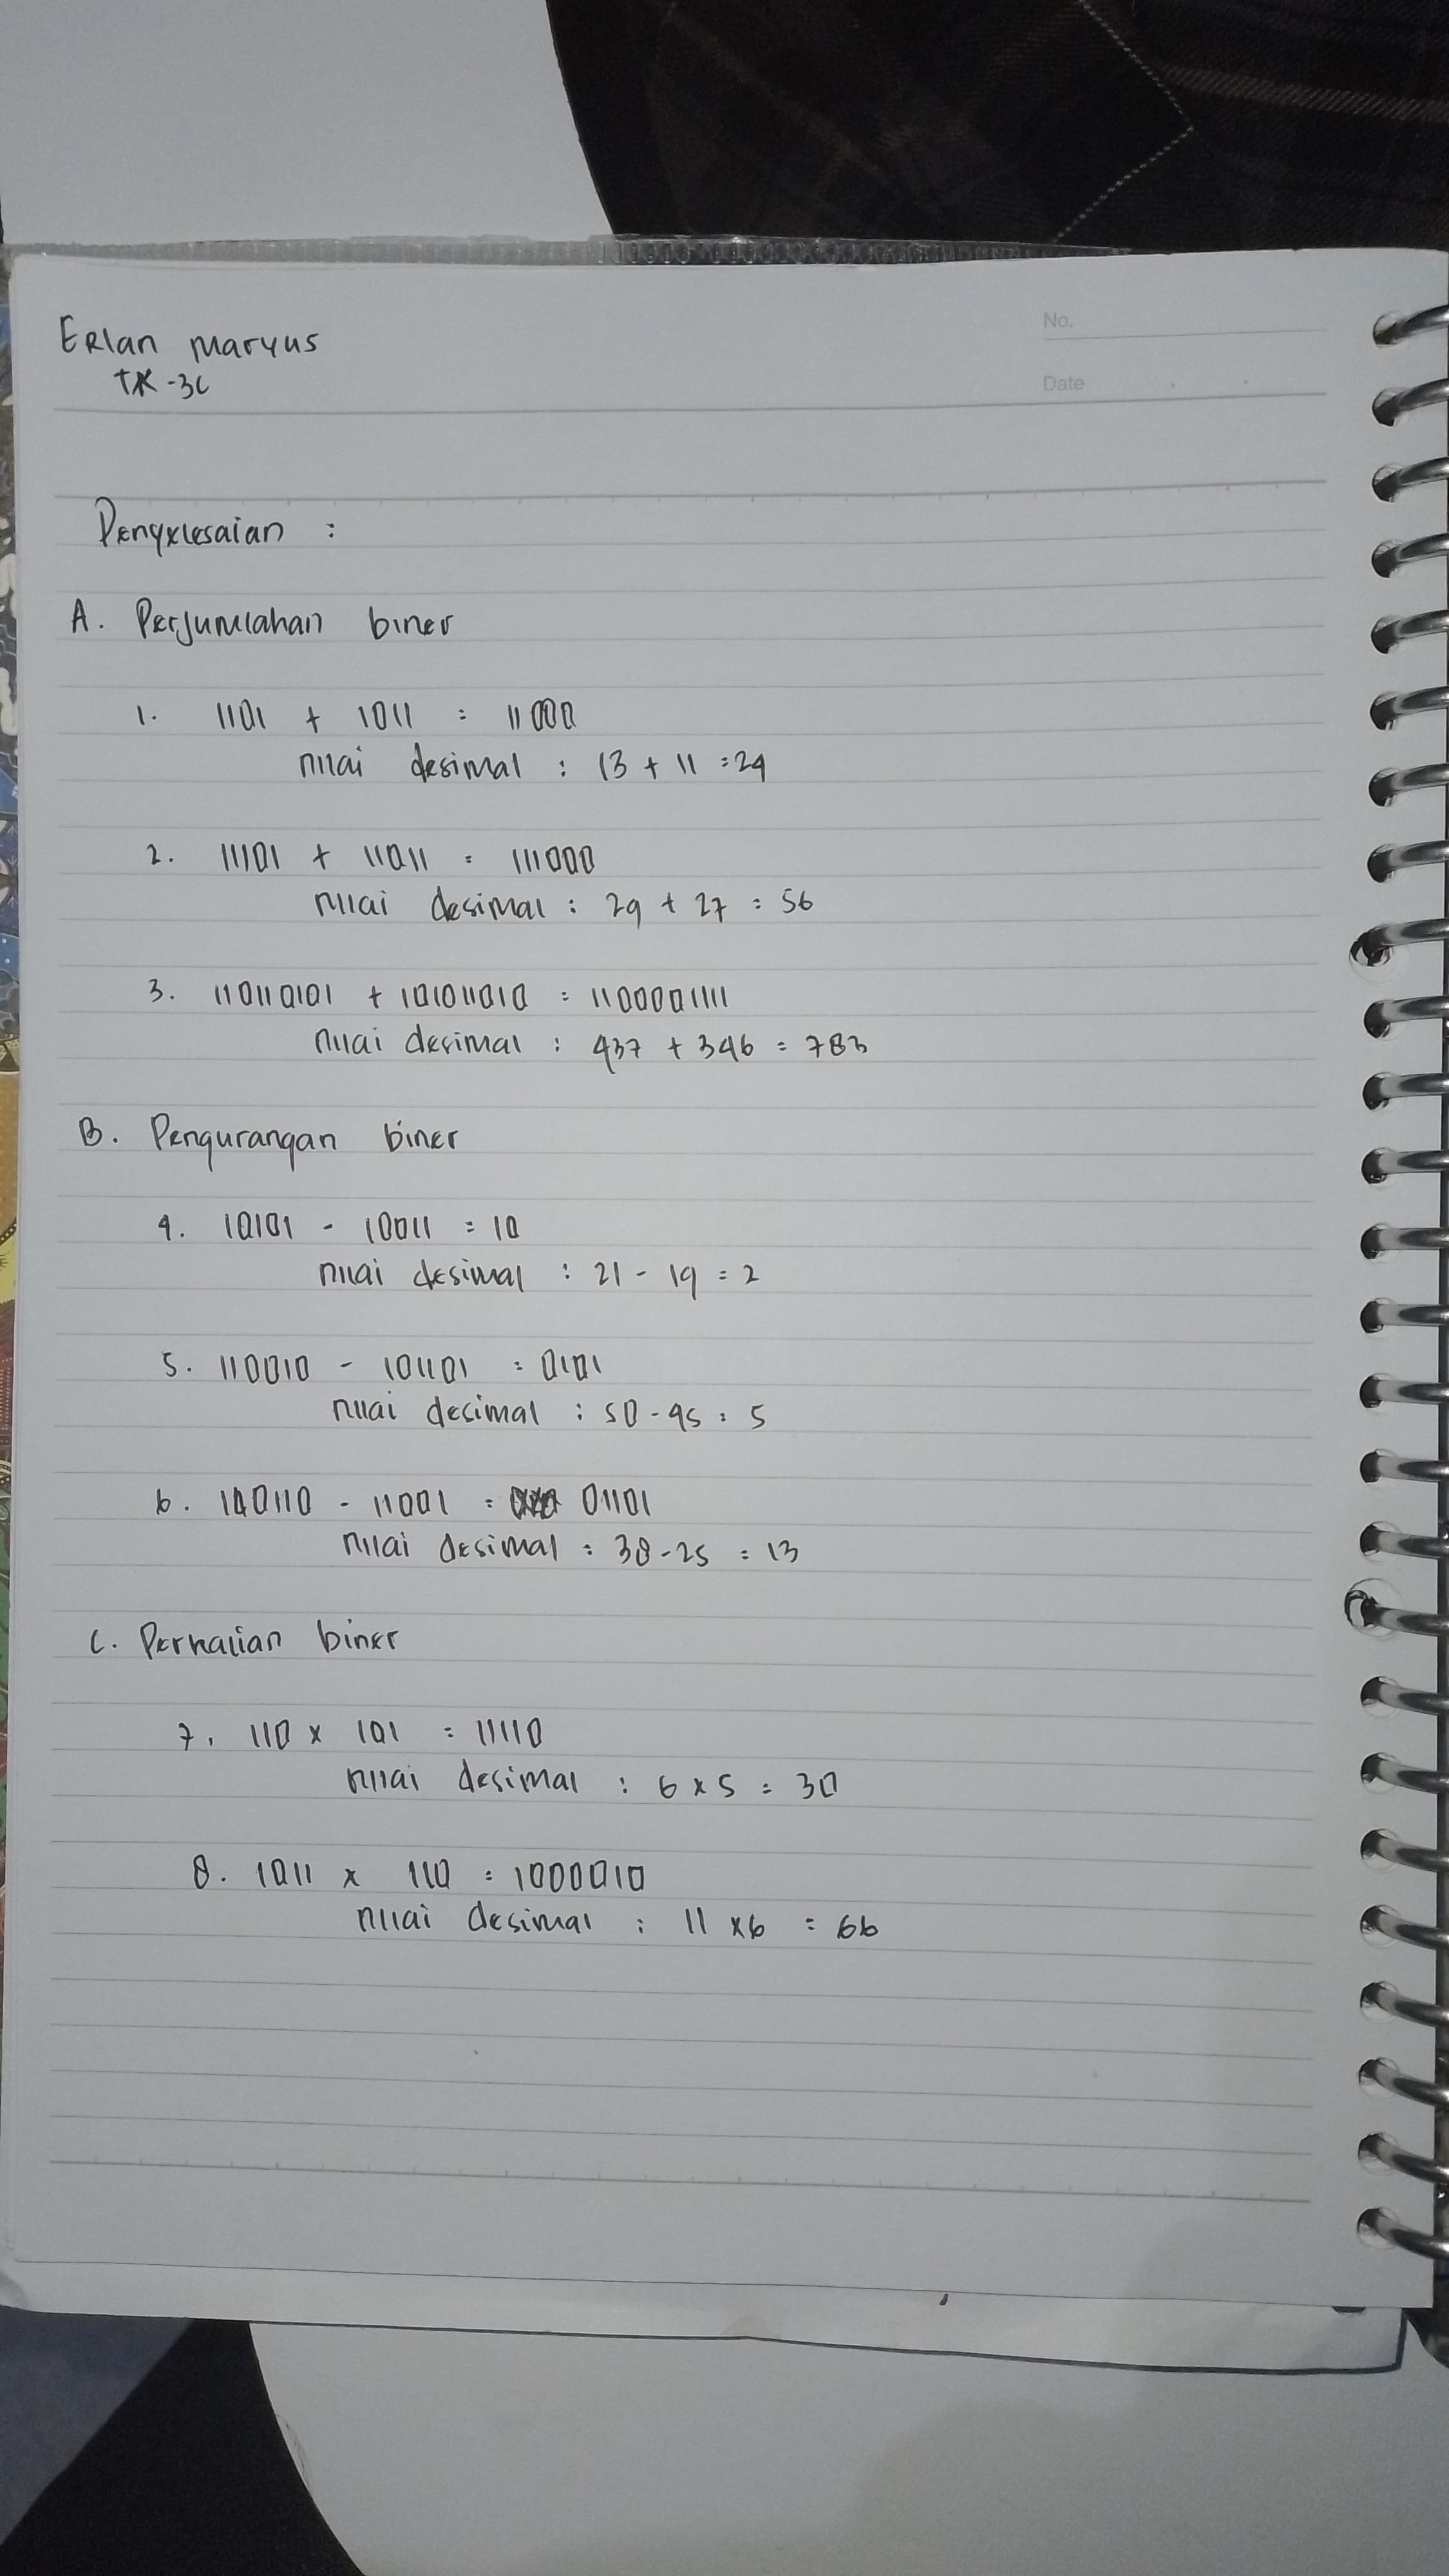 Erlan maryus
TK -3C
No.
Date
Penyelesaian :
A. Perjumlahan biner
1. 1101 + 1011 = 11000
nilai desimal : 13 + 11 = 24
2. 11101 + 11011 = 111000
nilai desimal : 29 + 27 = 56
3. 110110101 + 101011010 = 1100001111
nilai desimal : 437 + 346 = 783
B. Pengurangan biner
4. 10101 - 10011 = 10
nilai desimal : 21 - 19 = 2
5. 110010 - 101101 = 0101
nilai desimal : 50 - 45 = 5
6. 100110 - 11001 = 01101
nilai desimal : 38 - 25 = 13
C. Perkalian biner
7. 110 x 101 = 11110
nilai desimal : 6 x 5 = 30
8. 1011 x 110 = 1000010
nilai desimal : 11 x 6 = 66